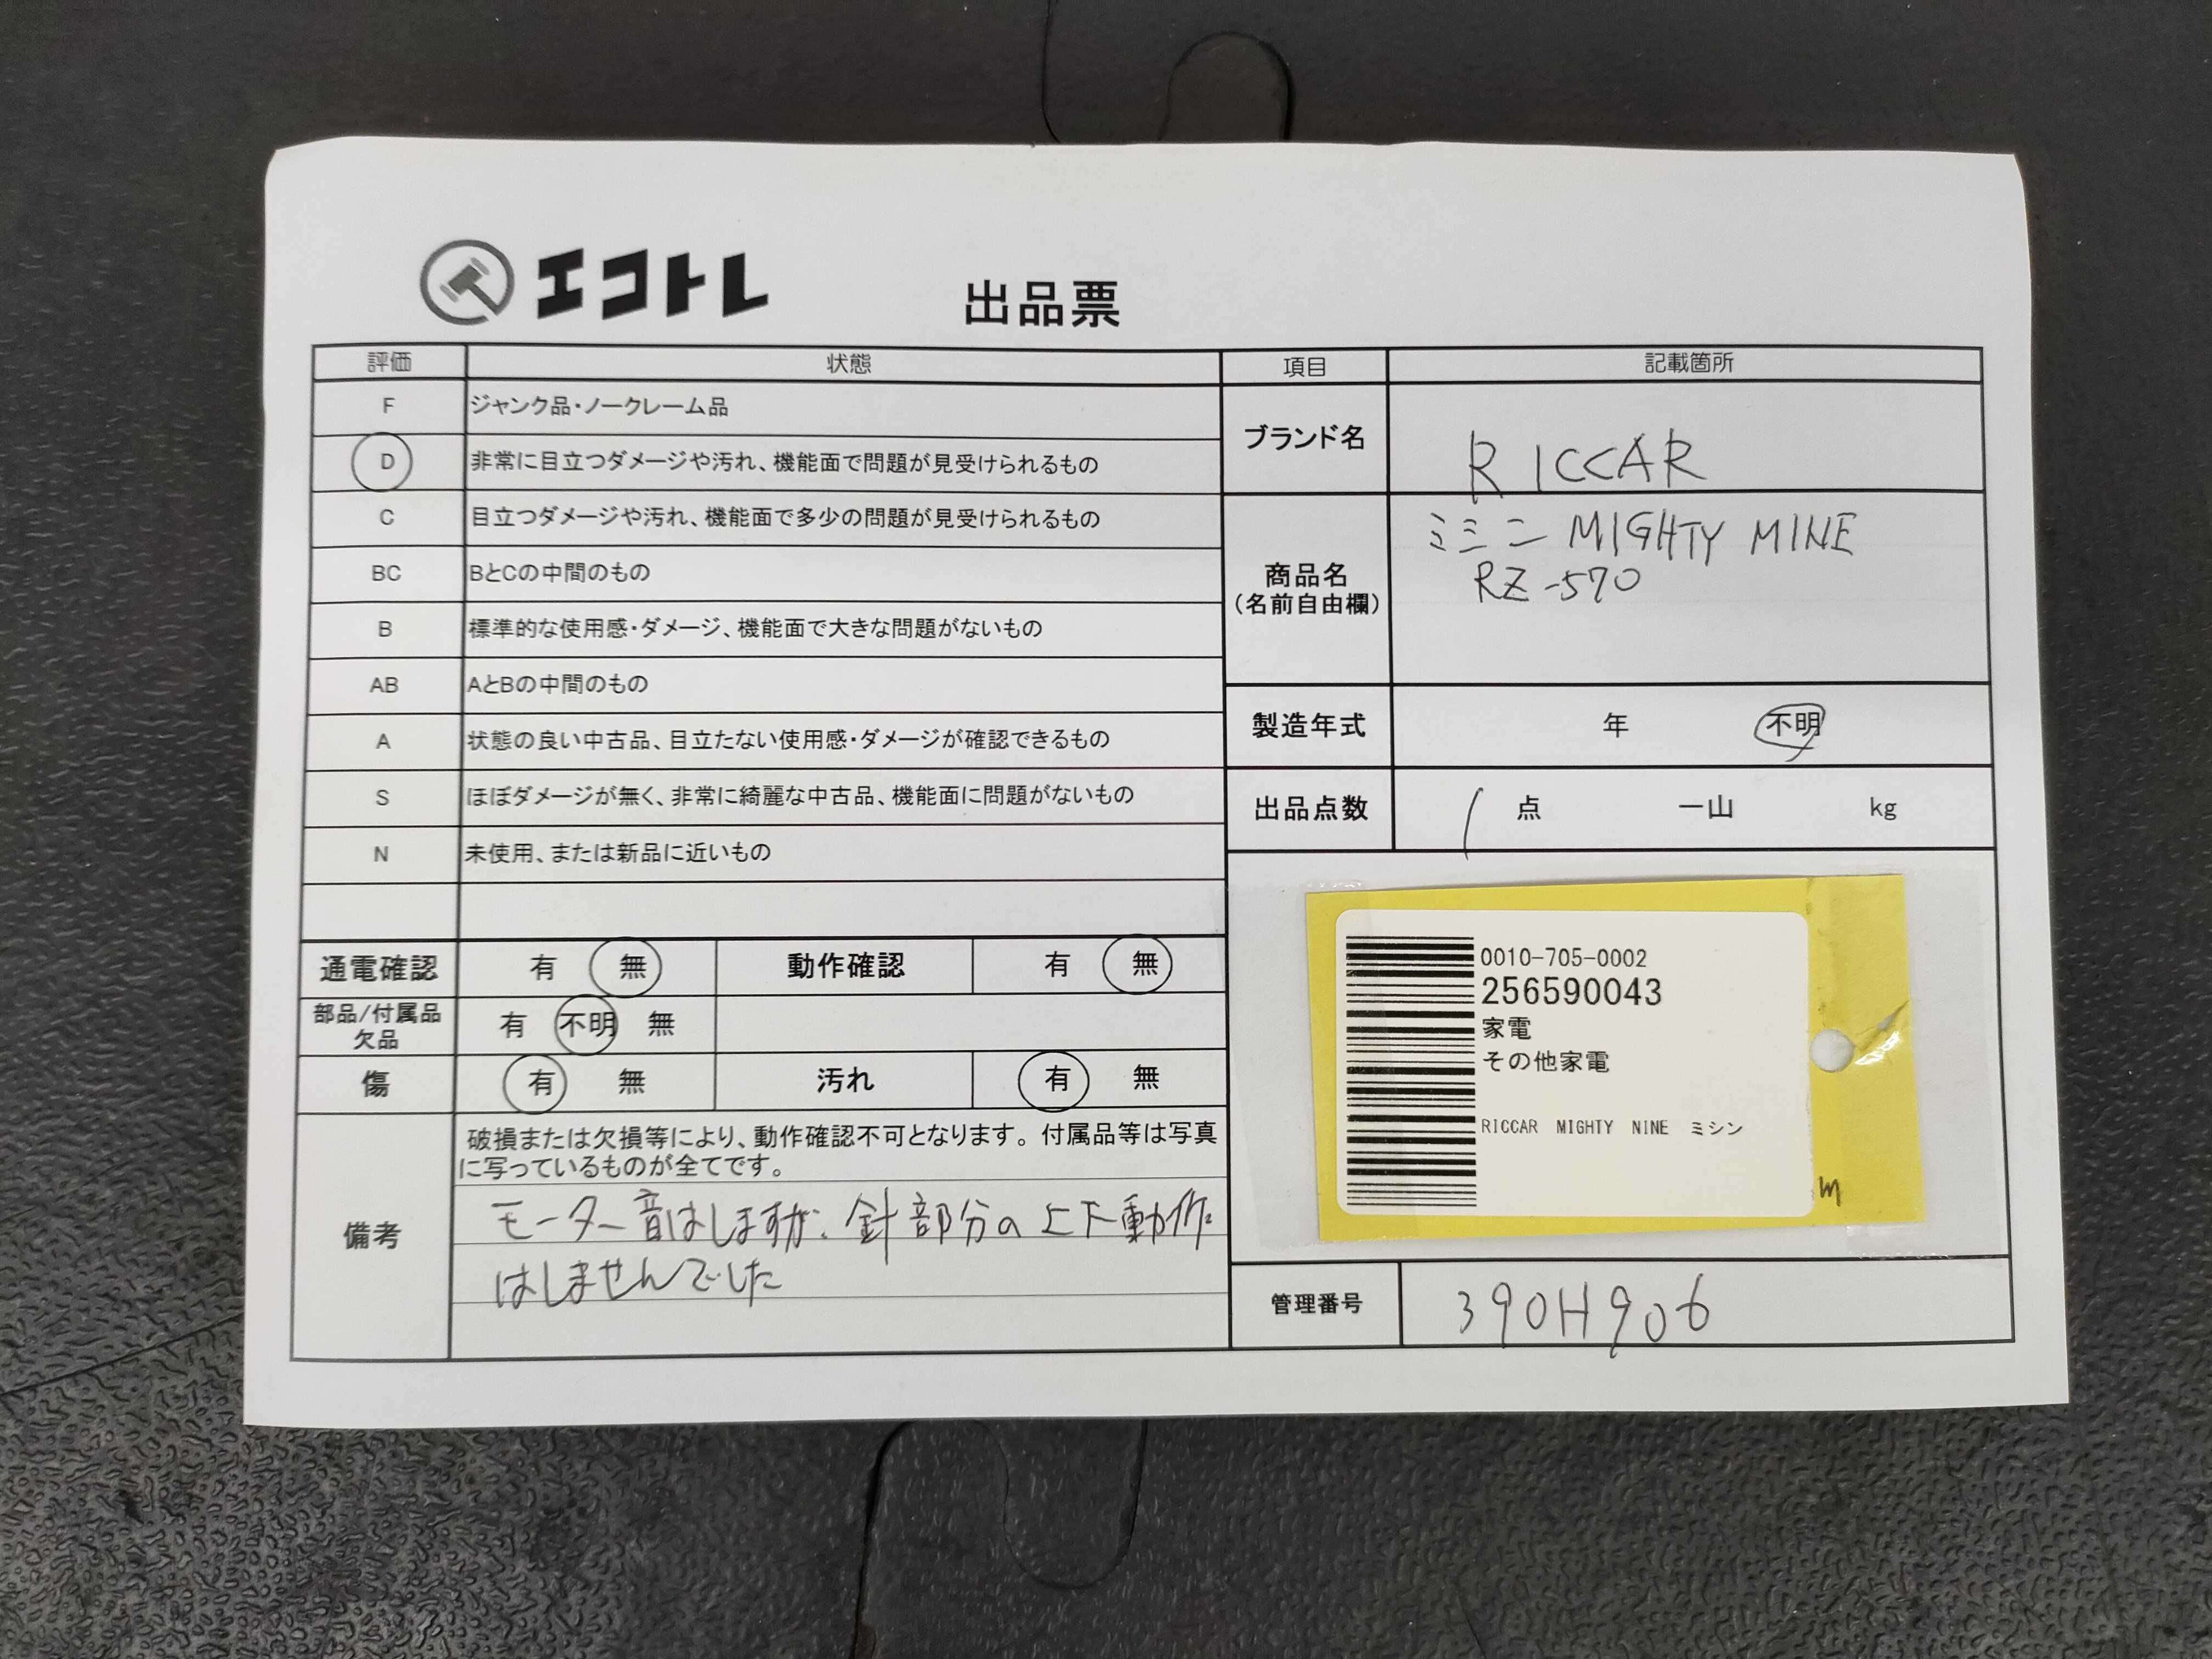 エコトレ
出品票
評価 状態
F ジャンク品・ノークレーム品
D 非常に目立つダメージや汚れ、機能面で問題が見受けられるもの
C 目立つダメージや汚れ、機能面で多少の問題が見受けられるもの
BC BとCの中間のもの
B 標準的な使用感・ダメージ、機能面で大きな問題がないもの
AB AとBの中間のもの
A 状態の良い中古品、目立たない使用感・ダメージが確認できるもの
S ほぼダメージが無く、非常に綺麗な中古品、機能面に問題がないもの
N 未使用、または新品に近いもの
通電確認 有 無 動作確認 有 無
部品/付属品
欠品
有 不明 無
傷 有 無 汚れ 有 無
備考
破損または欠損等により、動作確認不可となります。付属品等は写真
に写っているものが全てです。
モーター音はしますが、針部分の上下動作
はしませんでした
項目 記載箇所
ブランド名 RICCAR
商品名
(名前自由欄)
ミシン MIGHTY MINE
RZ-570
製造年式 年 不明
出品点数 1 点 一山 kg
0010-705-0002
256590043
家電
その他家電
RICCAR MIGHTY NINE ミシン
m
管理番号 390H906